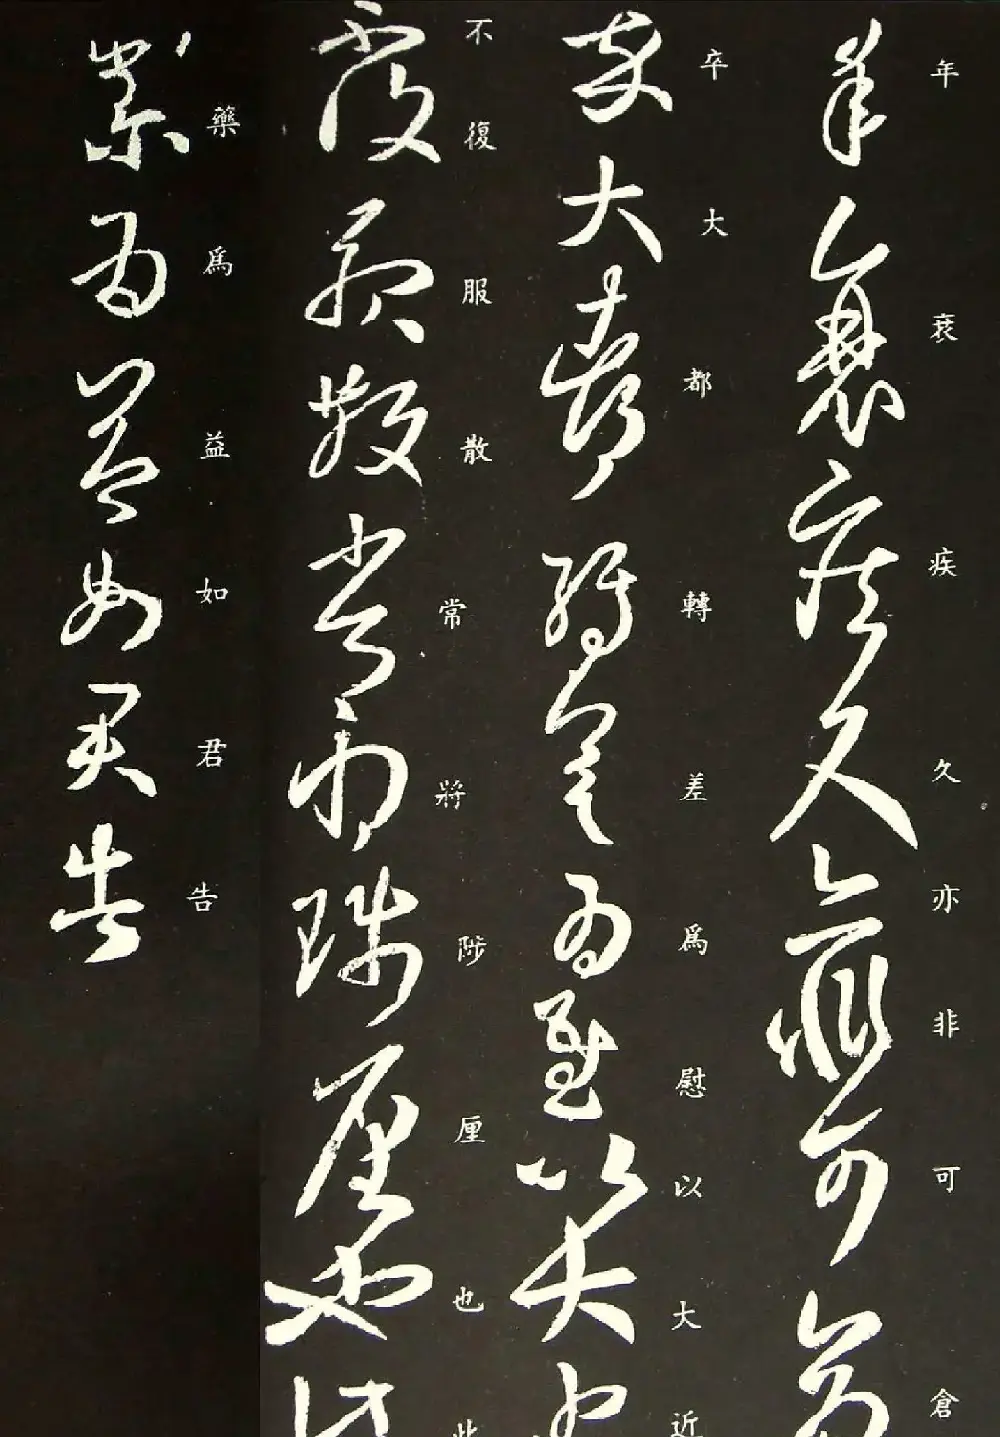 年衰疾久亦非可倉
卒大都轉差為慰以大近
不復服散常將陟厘也此
藥為益如君告